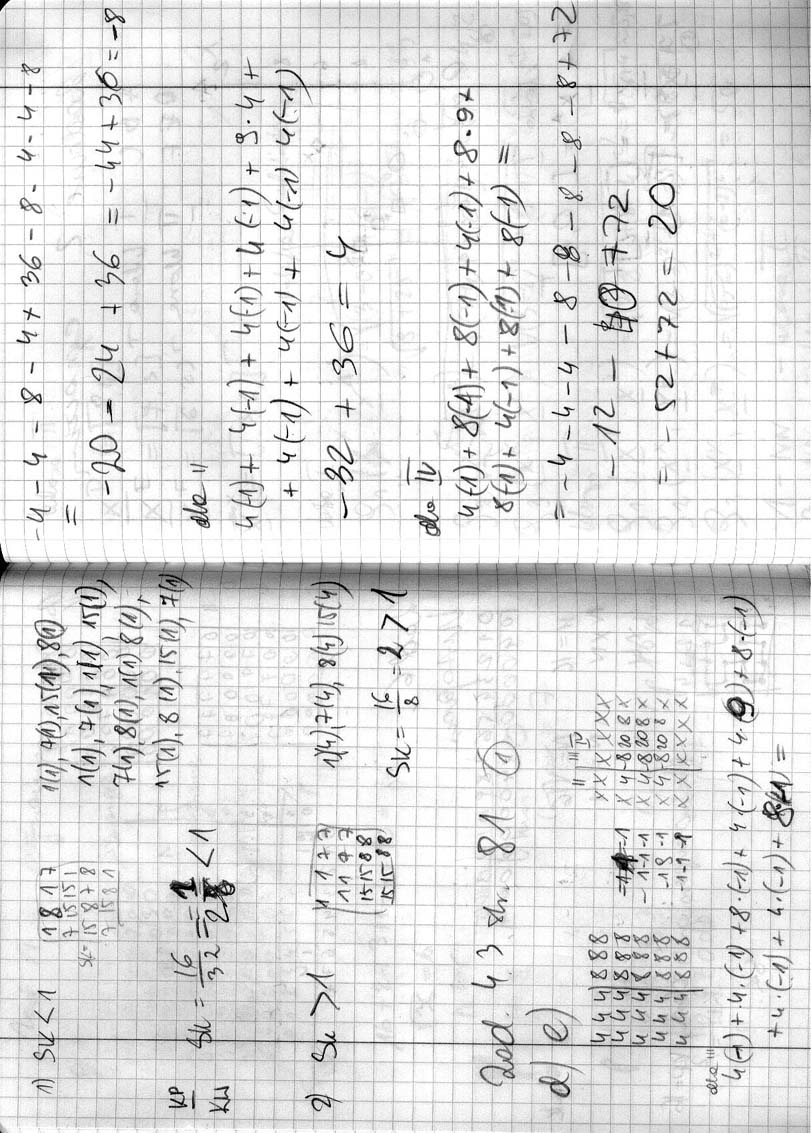 1) SK < 1
1 8 1 7
7 15 15 1
SK= 15 8 7 8
7 15 8 1
1(1), 7(1), 15(1), 8(1)
1(1), 7(1), 1(1) 15(1),
7(1), 8(1), 1(1) 8(1),
15(1), 8(1), 15(1), 7(1)
KP
KW
SK = 16/32 = 1/2 < 1
2) SK > 1
1 1 7 7
1 1 7 7
15 15 8 8
15 15 8 8
1(4) 7(4), 8(4) 15(4)
SK = 16/8 = 2 > 1
Zad. 4.3 str. 81 ①
d) e)
4 4 4 8 8 8
4 4 4 8 8 8
4 4 4 8 8 8
4 4 4 8 8 8
4 4 4 8 8 8
-1 -1 -1
-1 9 -1
-1 -1 -1
II III IV
x x x x x x
x 4 -8 20 8 x
x 4 -8 20 8 x
x 4 -8 20 8 x
x x x x x x
dla III
4(-1) + 4·(-1) + 8·(-1) + 4·(-1) + 4·(9) + 8·(-1)
+ 4·(-1) + 4·(-1) + 8(-1) =
-4 - 4 - 8 - 4 + 36 - 8 - 4 - 4 - 8
=
-20 - 24 + 36 = -44 + 36 = -8
dla II
4(-1) + 4(-1) + 4(-1) + 4(-1) + 9·4 +
+ 4(-1) + 4(-1) + 4(-1) 4(-1)
-32 + 36 = 4
dla IV
4(-1) + 8(-1) + 8(-1) + 4(-1) + 8·9 +
8(-1) + 4(-1) + 8(-1) + 8(-1) =
= -4 - 4 - 4 - 8 - 8 - 8 - 8 - 8 + 72
-12 - 40 + 72
= -52 + 72 = 20